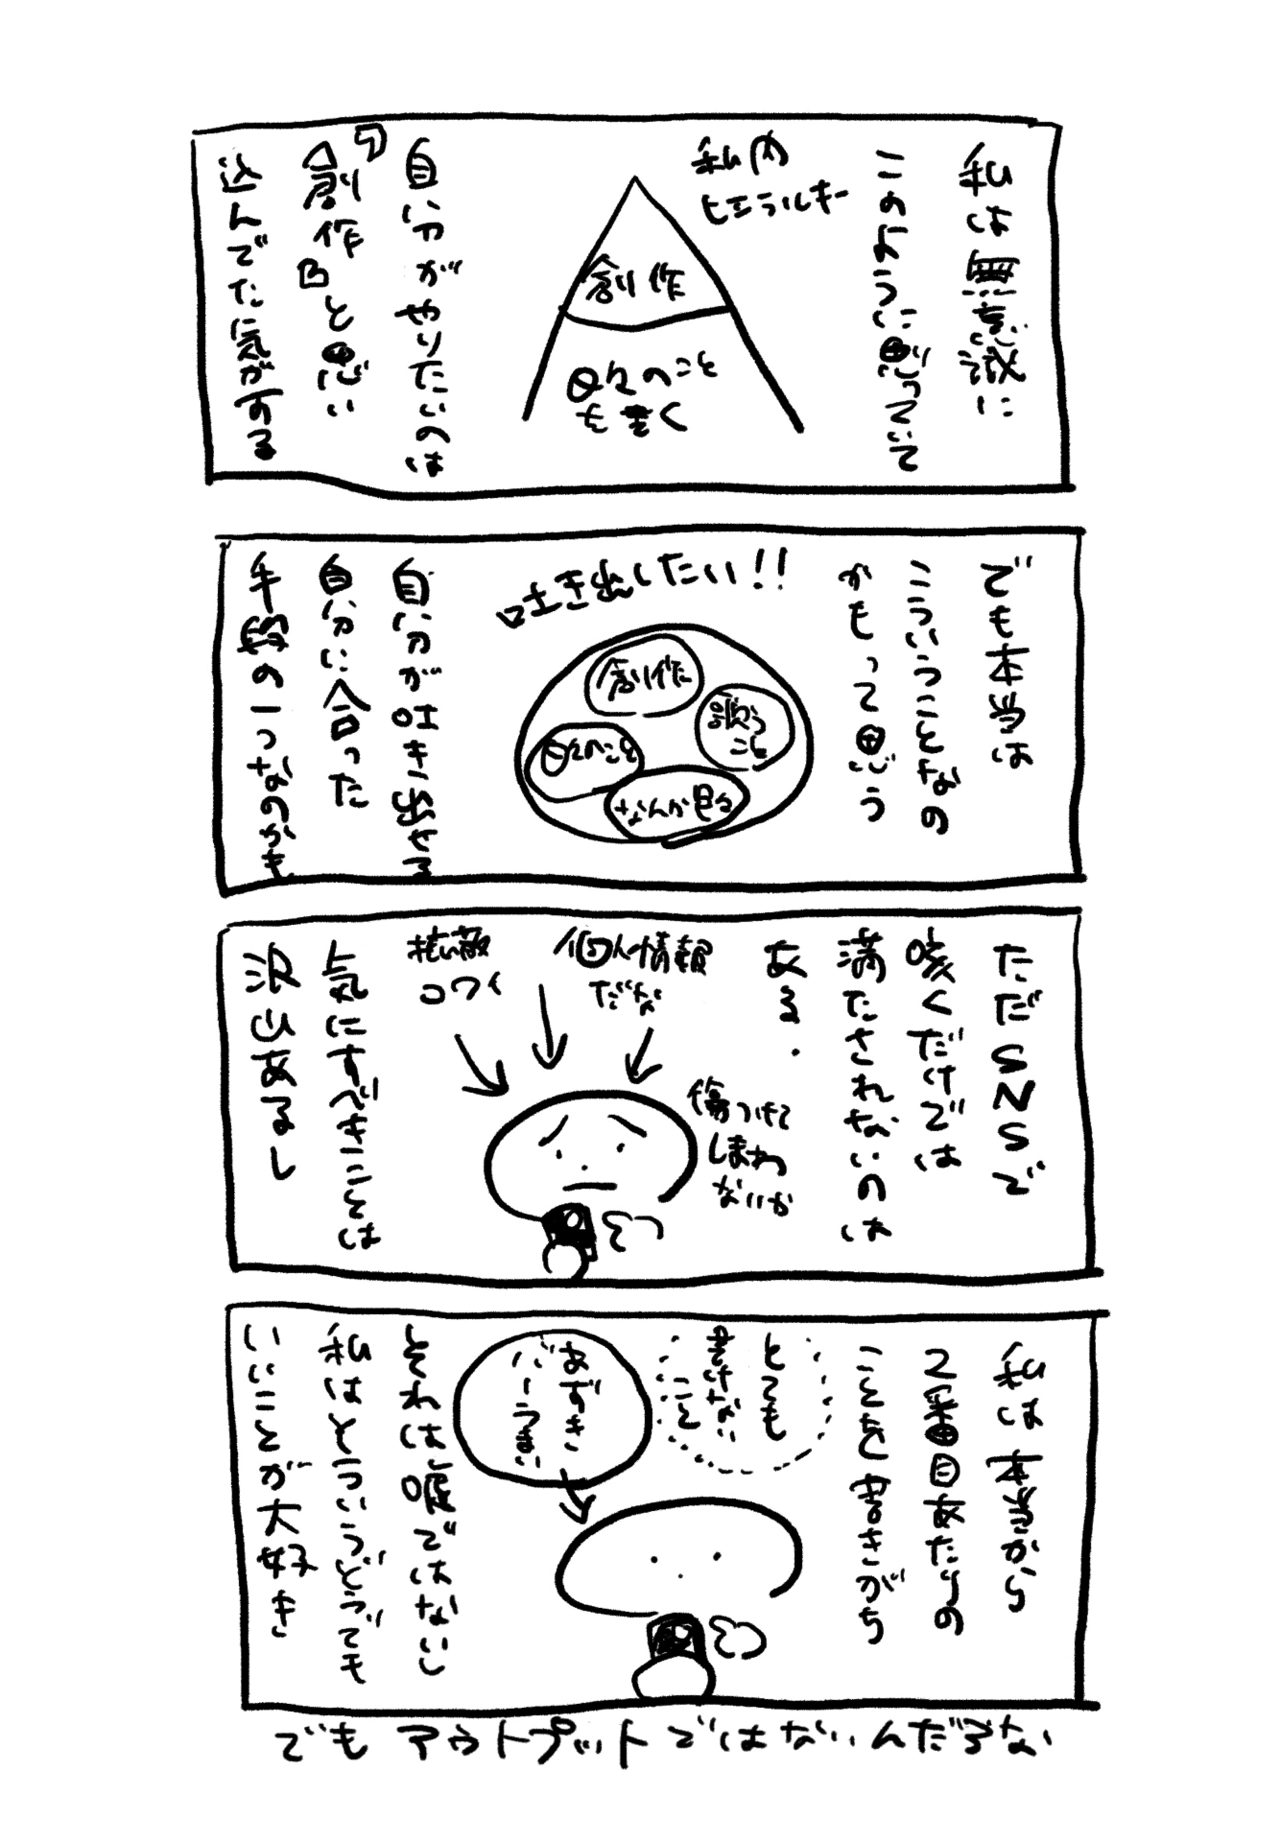 私は無意識に
このように思っていて
私内
ヒエラルキー
創作
日々のこと
を書く
自分がやりたいのは
「創作」と思い
込んでた気がする
でも本当は
こういうことなの
かもって思う
吐き出したい!!
創作
歌う
こと
日々のこと
なんか色々
自分が吐き出せる
自分に合った
手段の一つなのかも
ただSNSで
呟くだけでは
満たされないのは
ある.
個人情報
だな
拡散
コワイ
傷つけて
しまわ
ないか
気にすべきことは
沢山あるし
私は本当から
2番目あたりの
ことを書きがち
とても
書けない
こと
あずき
バーうまい
それは嘘ではないし
私はそういうどうでも
いいことが大好き
でもアウトプットではないんだろな